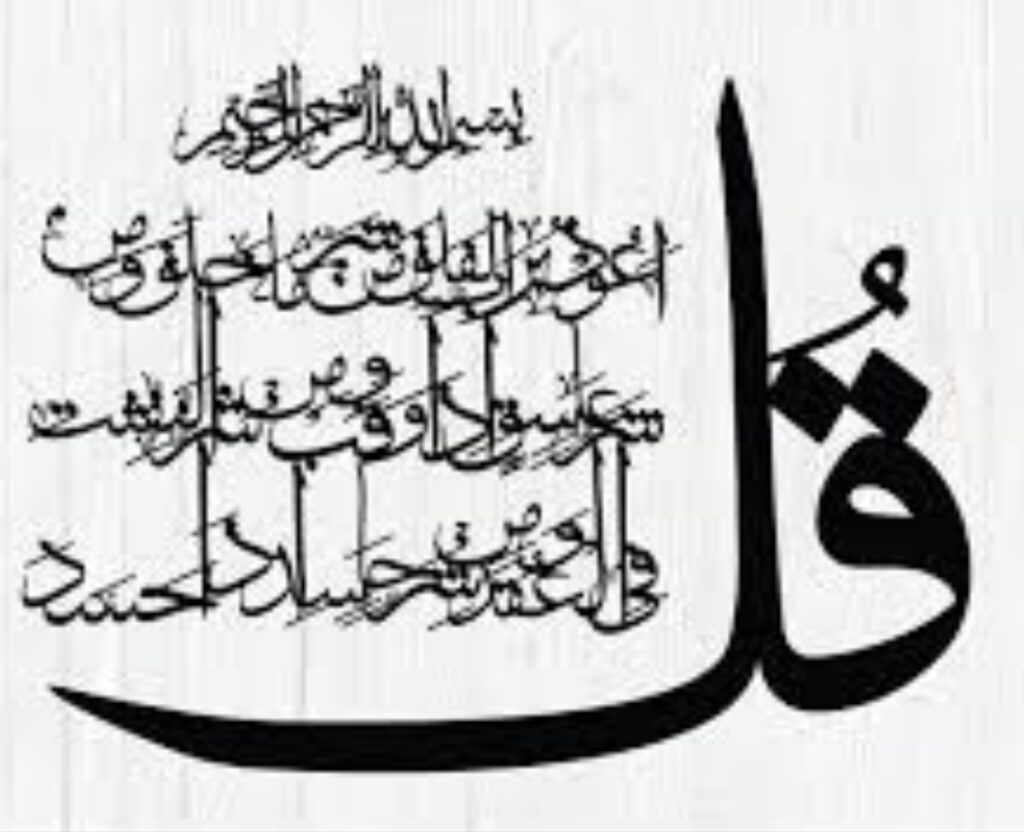 بسم الله الرحمن الرحيم
قُل
اعوذ برب الفلق من شر ما خلق ومن
شر غاسق اذا وقب ومن شر النفثت
فى العقد ومن شر حاسد اذا حسد